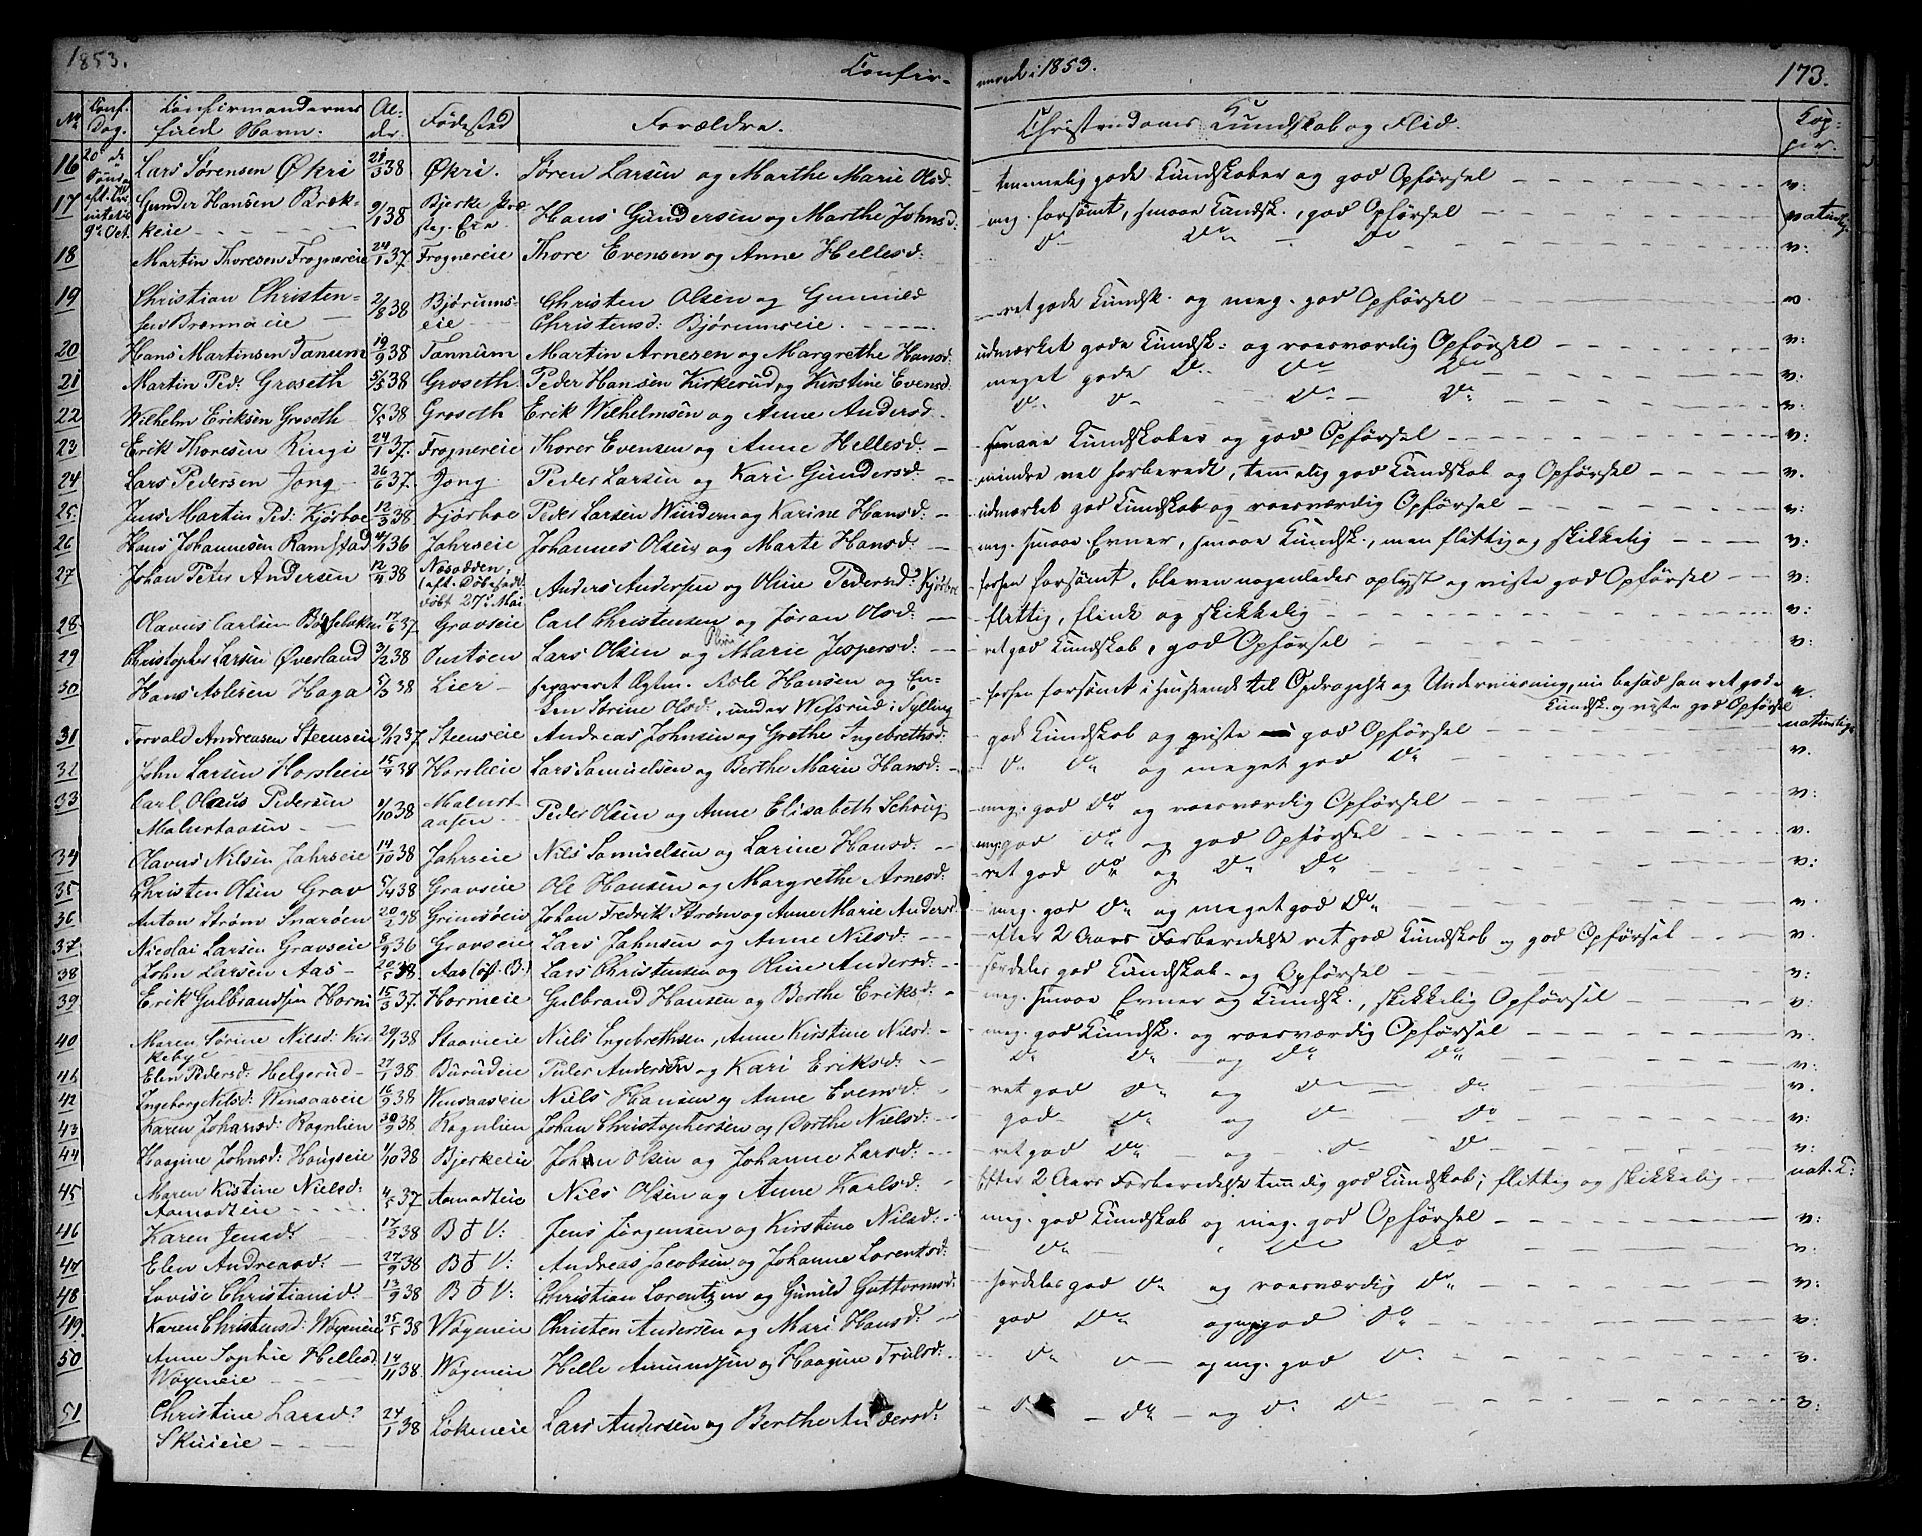 1853. Confir- merede i 1853. 173.
No Conf. Dag. Confirmandernes fulde Navn. Al- der. Fødested Forældre. Christendoms Kundskab og Flid. Kop- per.
20de Sønd. eft. Trinitatis 9de Oct.
16 Lars Sørensen Økri 21/3 38 Økri. Søren Larsen og Marthe Marie Olsd. temmelig gode Kundskaber og god Opførsel v:
17 Gunder Hansen Bræk- 9/1 38 Bjerke Præ Hans Gundersen og Marthe Johnsd: meg. forsømt, smaae Kundsk., god Opførsel naturlig.
keie
18 Martin Thoresen Frognereie 24/1 37. Frognereie Thore Evensen og Anne Hellesd: Do Do Do v:
19 Christian Christen- 2/8 38 Bjørums- Christen Olsen og Gunnild ret gode Kundsk. og meg. god Opførsel v
sen Brennaeie eie Christensd: Bjørumseie.
20 Hans Martinsen Tanum 19/9 38 Tannum Martin Arnesen og Margrethe Hansd: udmærket gode Kundsk: og roesværdig Opførsel v:
21 Martin Ped: Groseth 5/3 38 Groseth Peder Hansen Kirkerud og Kirstine Evensd: meget gode Do Do Do v:
22 Wilhelm Eriksen Groseth 38 Groseth Erik Wilhelmsen og Anne Andersd. Do Do Do Do v:
23 Erik Thoresen Ringi 24/1 37. Frognereie Thorer Evensen og Anne Hellesd: smaae Kundskaber og god Opførsel v:
24 Lars Pedersen Jong 26/6 37. Jong Peder Larsen og Kari Gundersd: mindre vel forberedt, temelig god Kundskab og Opførsel v.
25. Jens Martin Ped: Kjørboe 12/3 38. Kjørboe Peder Larsen Windern og Karine Hansd: udmærket god Kundskab og roesværdig Opførsel v:
26 Hans Johannesen Ramstad 36 Jahrseie Johannes Olsen og Marte Hansd: meg. smaae Evner, smaae Kundsk., men flittig og skikkelig v:
27 Johan Peter Andersen 12/4 38 Næsodden, Anders Andersen og Oline Pedersd: Kjørboe forsømt, bleven nogenledes oplyst og viste god Opførsel v:
(eft. Døbesedd. født 27de Mai
28 Olavus Carlsen 17/6 37. Gravseie Carl Christensen og Jøran Olsd: flittig, flink og skikkelig v:
29 Christopher Larsen Øverland 3/12 38 Onstøen Lars Olsen og Oline Marie Jespersd: ret god Kundskab, god Opførsel v:
30 Hans Aslesen Haga 38 Lier separeret Ægtm. Asle Hansen og En- forsømt i Henseende til Opdragelse og Underviisning, nu besad han ret gode v.
ken Sørine Olsd:, under Wefsrud i Sylling Kundsk. og viste god Opførsel
31 Torvald Andreasen Steenseie 9/12 37. Steenseie Andreas Johnsen og Grethe Ingebrethsd: god Kundskab og viste god Opførsel naturlige
32 John Larsen Horsleeie 15/4 38 Horsleeie Lars Samuelsen og Berthe Marie Hansd: Do Do og meget god Do v.
33 Carl Olaus Pedersen 1/10 38 Malurt- Peder Olsen og Anne Elisabeth meg. god Do og roesværdig Opførsel v:
Malurtaasen aasen
34 Olavus Nilsen Jahrseie 14/10 38 Jahrseie Nils Samuelsen og Larine Hansd: meg. god Do og god Opførsel v.
35 Christen Olsen Grav 5/4 38 Gravseie Ole Hansen og Margrethe Arnesd: ret god Do og Do Do v:
36 Anton Strøm Snarøen 20/2 38 Grimsøeie Johan Fredrik Strøm og Anne Marie Andersd. meg. god Do og meget god Do v.
37. Nicolai Larsen Gravseie 8/9 36 Gravseie Lars Jahnsen og Anne Nilsd: efter 2 Aars Forberedelse ret god Kundskab og god Opførsel v.
38 John Larsen Aas 20/5 38. Aas (Øst. B.) Lars Christensen og Oline Andersd: særdeles god Kundskab og Opførsel v:
39 Erik Gulbrandsen Horni 15/3 37. Horneie Gulbrand Hansen og Berthe Eriksd: meg. smaae Evner og Kundsk., skikkelig Opførsel v:
40 Maren Sørine Nilsd: Kir- 29/1 38 Staverieie Niels Ingebrethsen, Anne Kirstine Nilsd: meg. god Kundsk. og roesværdig Opførsel v.
kebye
41 Elen Pedersd: Helgerud 27/1 38. Burudeie Peder Andersen og Kari Eriksd: Do Do og Do Do v:
42 Ingeborg Nilsd: Wensaaseie 16/9 38 Wensaaseie Niels Hansen og Anne Evensd: ret god Do og Do Do v.
43 Karen Johansd: Rognlien 30/9 38 Rognlien Johan Christophersen og Dorthe Nielsd: god Do og Do Do v:
44 Haagine Johnsd: Haugseie 1/10 38 Bjerkeeie John Olsen og Johanne Larsd: ret god Do og Do Do v:
45 Maren Kistine Nielsd: 4/5 37 Aamodteie Nils Olsen og Anne Karlsd: Efter 2 Aars Forberedelse temelig god Kundskab; flittig og skikkelig nat. K:
Aamodteie
46 Karen Jensd: 17/2 38 B ♂ V: Jens Jørgensen og Kirstine Nilsd: meg. god Kundskab og meg. god Opførsel v:
47 Elen Andreasd: 27/9 38 B ♂ V: Andreas Jacobsen og Johanne Lorentsd: Do Do Do v.
48 Lovise Christiansd: 13/9 38 B ♂ V: Christian Lorentzen og Gunild Guttormsd: særdeles god Do og roesværdig Do v:
49. Karen Christensd: Wøyeneie 25/5 38 Wøyeneie Christen Andersen og Mari Hansd: god Do og meg. god Do v:
50 Anne Sophie Hellesd. 14/11 38. Wøyeneie Helle Amundsen og Haagine Trulsd: Do Do og meg. god Do v.
Wøyeneie
51 Christine Larsd: 24/1 38 Løkeneie Lars Andersen og Berthe Andersd: Do Do og Do Do v:
Skuieie